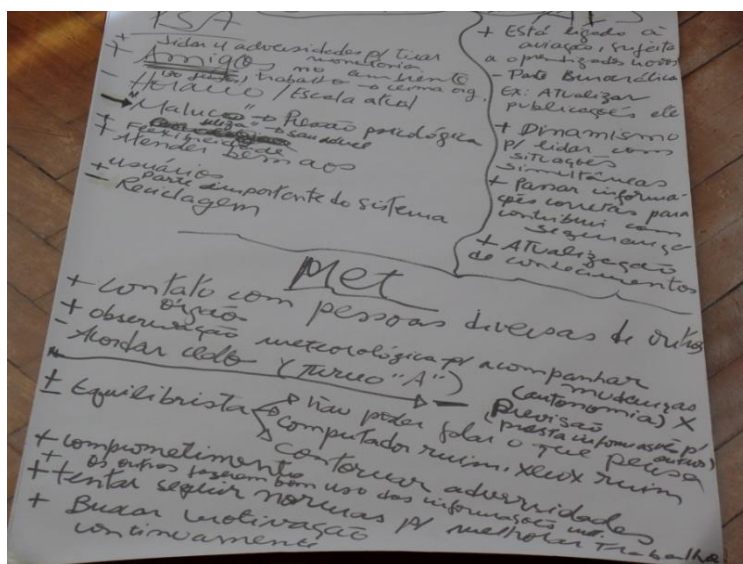 + lidar c/ adversidades p/ tirar
monotonia
+ Amigo, no ambiente
de trabalho → clima org.
- Horário / Escala atual
→ "Maluco" → Pressão psicológica
saudável
+ Flexibilidade
+ Atender bem aos
usuários
+ Parte importante do sistema
- Reciclagem
+ Está ligado à
aviação, sujeito
a aprendizados novos
- Parte Burocrática
EX: ATUALIZAR
publicações etc
+ Dinamismo
p/ lidar com
situações
simultâneas
+ Passar informa-
ções corretas para
contribuir com
segurança
+ ATUALIZAÇÃO
de conhecimentos
Met
+ contato com pessoas diversas de outros
órgãos
+ observação meteorológica p/ acompanhar
mudanças
- Acordar cedo (turno "A")
(autonomia) X
- Previsão
(presta informação p/
outros)
± Equilibrista
Não poder falar o que pensa
computador ruim, xerox ruim
contornar adversidades
+ comprometimento
+ os outros fazerem bom uso das informações
+ tentar seguir normas p/ melhorar Trabalho
+ Buscar motivação
continuamente